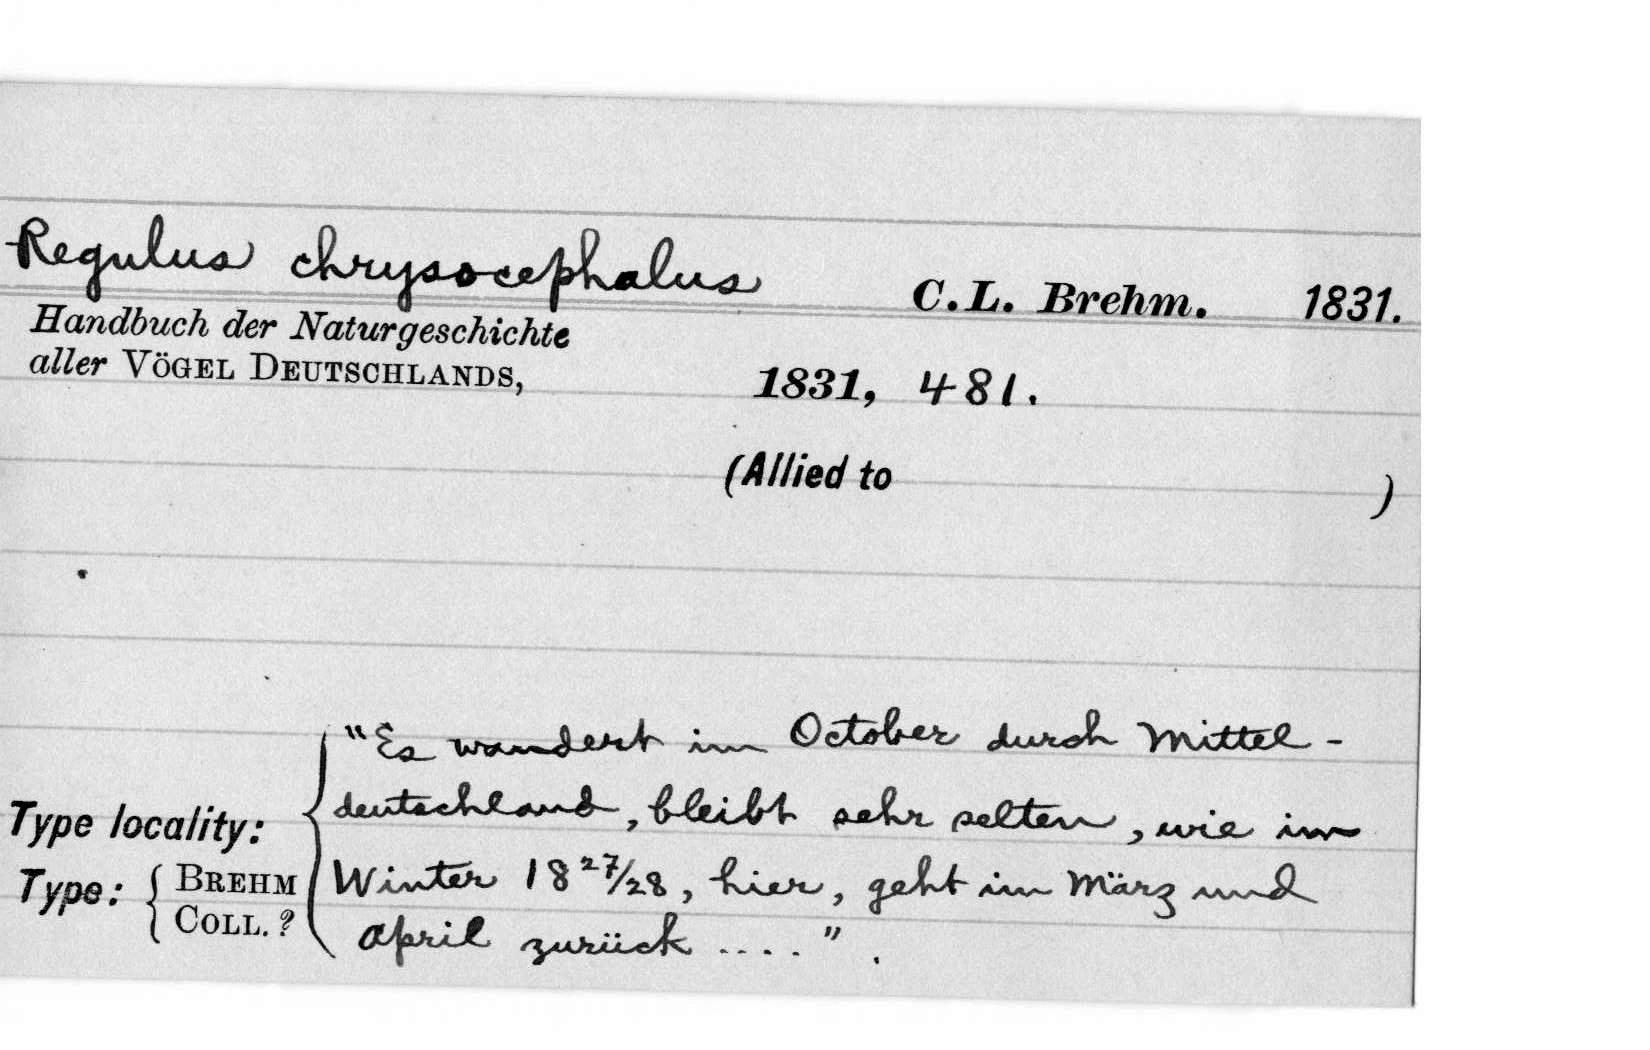 Regulus chrysocephalus C.L. Brehm. 1831.
Handbuch der Naturgeschichte
aller VÖGEL DEUTSCHLANDS, 1831, 481.
(Allied to )
"Es wandert im October durch Mittel-
Type locality: deutschland, bleibt sehr selten, wie im
Type: { BREHM COLL. ? Winter 18 27/28, hier, geht im März und
April zurück ....".